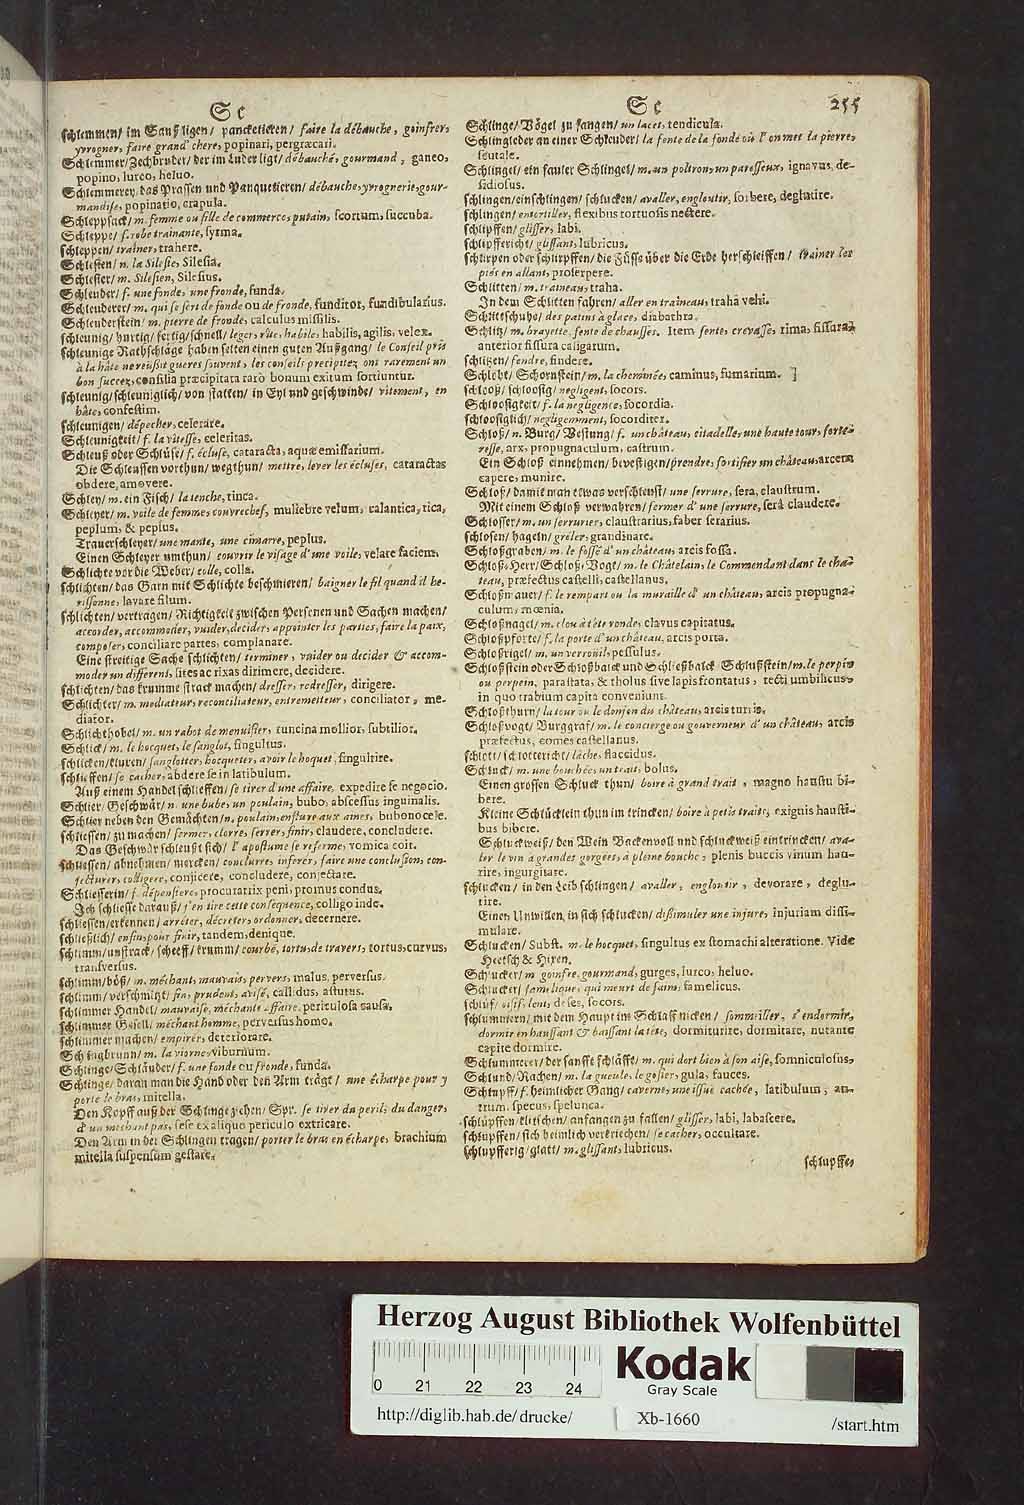 Sc
schlemmen/ im Sauß ligen/ pancketieren/ faire la débauche, goinfrer,
yvrogner, faire grand' chere, popinari, pergræcari.
Schlemmer/Zechbruder/ der im Luder ligt/ débauché, gourmand, ganeo,
popino, lurco, heluo.
Schlemmerey, das Prassen und Panquetieren/ débauche, yvrognerie, gour-
mandise, popinatio, crapula.
Schleppsack/ m. femme ou fille de commerce, putain, scortum, succuba.
Schleppe/ f. robe trainante, syrma.
schleppen/ trainer, trahere.
Schlesien/ n. la Silesie, Silesia.
Schlesier/ m. Silesien, Silesius.
Schleuder/ f. une fonde, une fronde, funda.
Schleuderer/ m. qui se sert de fonde ou de fronde, funditor, fundibularius.
Schleuderstein/ m. pierre de fronde, calculus missilis.
schleunig/ hurtig/ fertig/schnell/ leger, vîte, habile, habilis, agilis, velex.
schleunige Rathschläge haben selten einen guten Außgang/ le Conseil pris
à la hâte ne reüßit gueres souvent, les conseils precipitez ont rarement un
bon succez, consilia præcipitata rarò bonum exitum sortiuntur.
schleunig/schleuniglich/ von statten/ in Eyl und geschwinde/ vitement, en
hâte, confestim.
schleunigen/ dépecher, celerare.
Schleunigkeit/ f. la vîtesse, celeritas.
Schleuß oder Schlüse/ f. écluse, cataracta, aquæ emissarium.
Die Schleussen vorthun/ wegthun/ mettre, lever les écluses, cataractas
obdere, amovere.
Schley/ m. ein Fisch/ la tenche, tinca.
Schleyer/ m. voile de femme, couvrechef, muliebre velum, calantica, rica,
peplum, & peplus.
Trauerschleyer/ une mante, une cimarre, peplus.
Einen Schleyer umthun/ couvrir le visage d'une voile, velare faciem.
Schlichte vor die Weber/ colle, colla.
schlichten/ das Garn mit Schlichte beschmieren/ baigner le fil quand il he-
rissonne, lavare filum.
schlichten/ vertragen/ Richtigkeit zwischen Personen und Sachen machen/
accorder, accommoder, vuider, decider, appointer les parties, faire la paix,
composer, conciliare partes, complanare.
Eine streitige Sache schlichten/ terminer, vuider ou decider & accom-
moder un different, lites ac rixas dirimere, decidere.
schlichten/ das krumme strack machen/ dresser, redresser, dirigere.
Schlichter/ m. mediateur, reconciliateur, entremetteur, conciliator, me-
diator.
Schlichthobel/ m. un rabot de menuisier, runcina mollior, subtilior.
Schlick/ m. le hocquet, le sanglot, singultus.
schlicken/kluxen/ sanglotter, hocqueter, avoir le hoquet, singultire.
schlieffen/ se cacher, abdere se in latibulum.
Auß einem Handel schlieffen/ se tirer d'une affaire, expedire se negocio.
Schlier/ Geschwär/ n. une bube, un poulain, bubo, abscessus inguinalis.
Schlier neben den Gemächten/ n. poulain, enflure aux aines, bubonocele.
schliessen/ zu machen/ fermer, clorre, serrer, finir, claudere, concludere.
Das Geschwär schleußt sich/ l'apostume se referme, vomica coit.
schliessen/ abnehmen/ mercken/ conclurre, inferer, faire une conclusion, con-
jecturer, colligere, conjicere, concludere, conjectare.
Schliesserin/ f. dépensiere, procuratrix peni, promus condus.
Ich schliesse darauß/ j'en tire cette consequence, colligo inde.
schliessen/erkennen/ arrêter, décreter, ordonner, decernere.
schließlich/ enfin, pour finir, tandem, denique.
schlimm/unstrack/ scheeff/ krumm/ courbé, tortu, de travers, tortus, curvus,
transversus.
schlimm/böß/ m. méchant, mauvais, pervers, malus, perversus.
schlimm/verschmitzt/ fin, prudent, avisé, callidus, astutus.
schlimmer Handel/ mauvaise, méchante affaire, periculosa causa.
schlimmer Gesell/ méchant homme, perversus homo.
schlimmer machen/ empirer, deteriorare.
Schlingbaum/ m. la viorne, viburnum.
Schlinge/ Schläuder/ f. une fonde ou fronde, funda.
Schlinge/ daran man die Hand oder den Arm trägt/ une écharpe pour y
porte le bras, mitella.
Den Kopff auß der Schlinge ziehen/ Spr. se tirer du peril, du danger,
d'un méchant pas, sese ex aliquo periculo extricare.
Den Arm in der Schlingen tragen/ porter le bras en écharpe, brachium
mitella suspensum gestare.
Sc 255
Schlinge/ Vögel zu fangen/ un lacet, tendicula.
Schlingleder an einer Schleuder/ la fente de la fonde où l'on met la pierre,
scutale.
Schlingel/ ein fauler Schlingel/ m. un poltron, un paresseux, ignavus, de-
sidiosus.
schlingen/einschlingen/ schlucken/ avaller, engloutir, sorbere, deglutire.
schlingen/ entortiller, flexibus tortuosis nectere.
schlipffen/ glisser, labi.
schlipffericht/ glissant, lubricus.
schlirpen oder schlirpffen/ die Füsse über die Erde herschleiffen/ trainer les
piés en allant, proserpere.
Schlitten/ m. traineau, traha.
In dem Schlitten fahren/ aller en traîneau, trahâ vehi.
Schlittschuhe/ des patins à glace, diabathra.
Schlitz/ m. brayette, fente de chausses. Item fente, crevasse, rima, fissura,
anterior fissura caligarum.
schlitzen/ fendre, findere.
Schlöht/ Schornstein/ m. la cheminée, caminus, fumarium.
schlooß/ schloosig/ negligent, socors.
Schloosigkeit/ f. la negligence, socordia.
schloosiglich/ negligemment, socorditer.
Schloß/ n. Burg/ Vestung/ f. un château, citadelle, une haute tour, forte-
resse, arx, propugnaculum, castrum.
Ein Schloß einnehmen/ bevestigen/prendre, fortifier un château, arcem
capere, munire.
Schloß/ damit man etwas verschleust/ une serrure, sera, claustrum.
Mit einem Schloß verwahren/ fermer d'une serrure, serâ claudere.
Schlosser/ m. un serrurier, claustrarius, faber serarius.
schlosen/ hageln/ grêler, grandinare.
Schloßgraben/ m. le fossé d'un château, arcis fossa.
Schloß-Herr/ Schloß-Vogt/ m. le Châtelain, le Commandant dans le châ-
teau, præfectus castelli, castellanus.
Schloßmauer/ f. le rempart ou la muraille d'un château, arcis propugna-
culum, mœnia.
Schloßnagel/ m. clou à tête ronde, clavus capitatus.
Schloßpforte/ f. la porte d'un château, arcis porta.
Schloßrigel/ m. un verrouil, pessulus.
Schloßstein oder Schloßbalck und Schließbalck Schlußstein/ m. le perpin
ou perpein, parastata, & tholus sive lapis frontatus, tecti umbilicus,
in quo trabium capita conveniunt.
Schloßthurn/ la tour ou le donjon du château, arcis turris.
Schloßvogt/ Burggraf/ m. le concierge ou gouverneur d'un château, arcis
præfectus, comes castellanus.
schlott/ schlottericht/ lâche, flaccidus.
Schluck/ m. une bouchée, un trait, bolus.
Einen grossen Schluck thun/ boire à grand trait, magno haustu bi-
bere.
Kleine Schlücklein thun im trincken/ boire à petits traits, exiguis hausti-
bus bibere.
Schluckweiß/ den Wein Backenvoll und schluckweiß eintrincken/ ava-
ler le vin à grandes gorgees, à pleine bouche, plenis buccis vinum hau-
rire, ingurgitare.
schlucken/ in den Leib schlingen/ avaller, engloutir, devorare, deglu-
tire.
Einen Unwillen in sich schlucken/ dißimuler une injure, injuriam dissi-
mulare.
Schlucken/ Subst. m. le hocquet, singultus ex stomachi alteratione. Vide
Heetsch & Hixen.
Schlucker/ m goinfre, gourmand, gurges, lurco, heluo.
Schlucker/ famelique, qui meurt de faim, famelicus.
schluf/ oisif, lent, deses, socors.
schlummern/ mit dem Haupt im Schlaff nicken/ sommeiller, s'endormir,
dormir en haussant & baissant la tête, dormiturire, dormitare, nutante
capite dormire.
Schlummerer/ der sanffe schläfft/ m. qui dort bien à son aise, somniculosus,
Schlund/ Rachen/ m. la gueule, le gosier, gula, fauces.
Schlupff/ f. heimlicher Gang/ caverne, une issue cachée, latibulum, an-
trum, specus, spelunca.
schlüpffen/ klitschen/ anfangen zu fallen/ glisser, labi, labascere.
schlupffen/ sich heimlich verkriechen/ se cacher, occultare.
schlupfferig/glatt/ m. glissant, lubricus.
schlupffe,
Herzog August Bibliothek Wolfenbüttel
0 21 22 23 24
Kodak
Gray Scale
http://diglib.hab.de/drucke/ Xb-1660 /start.htm